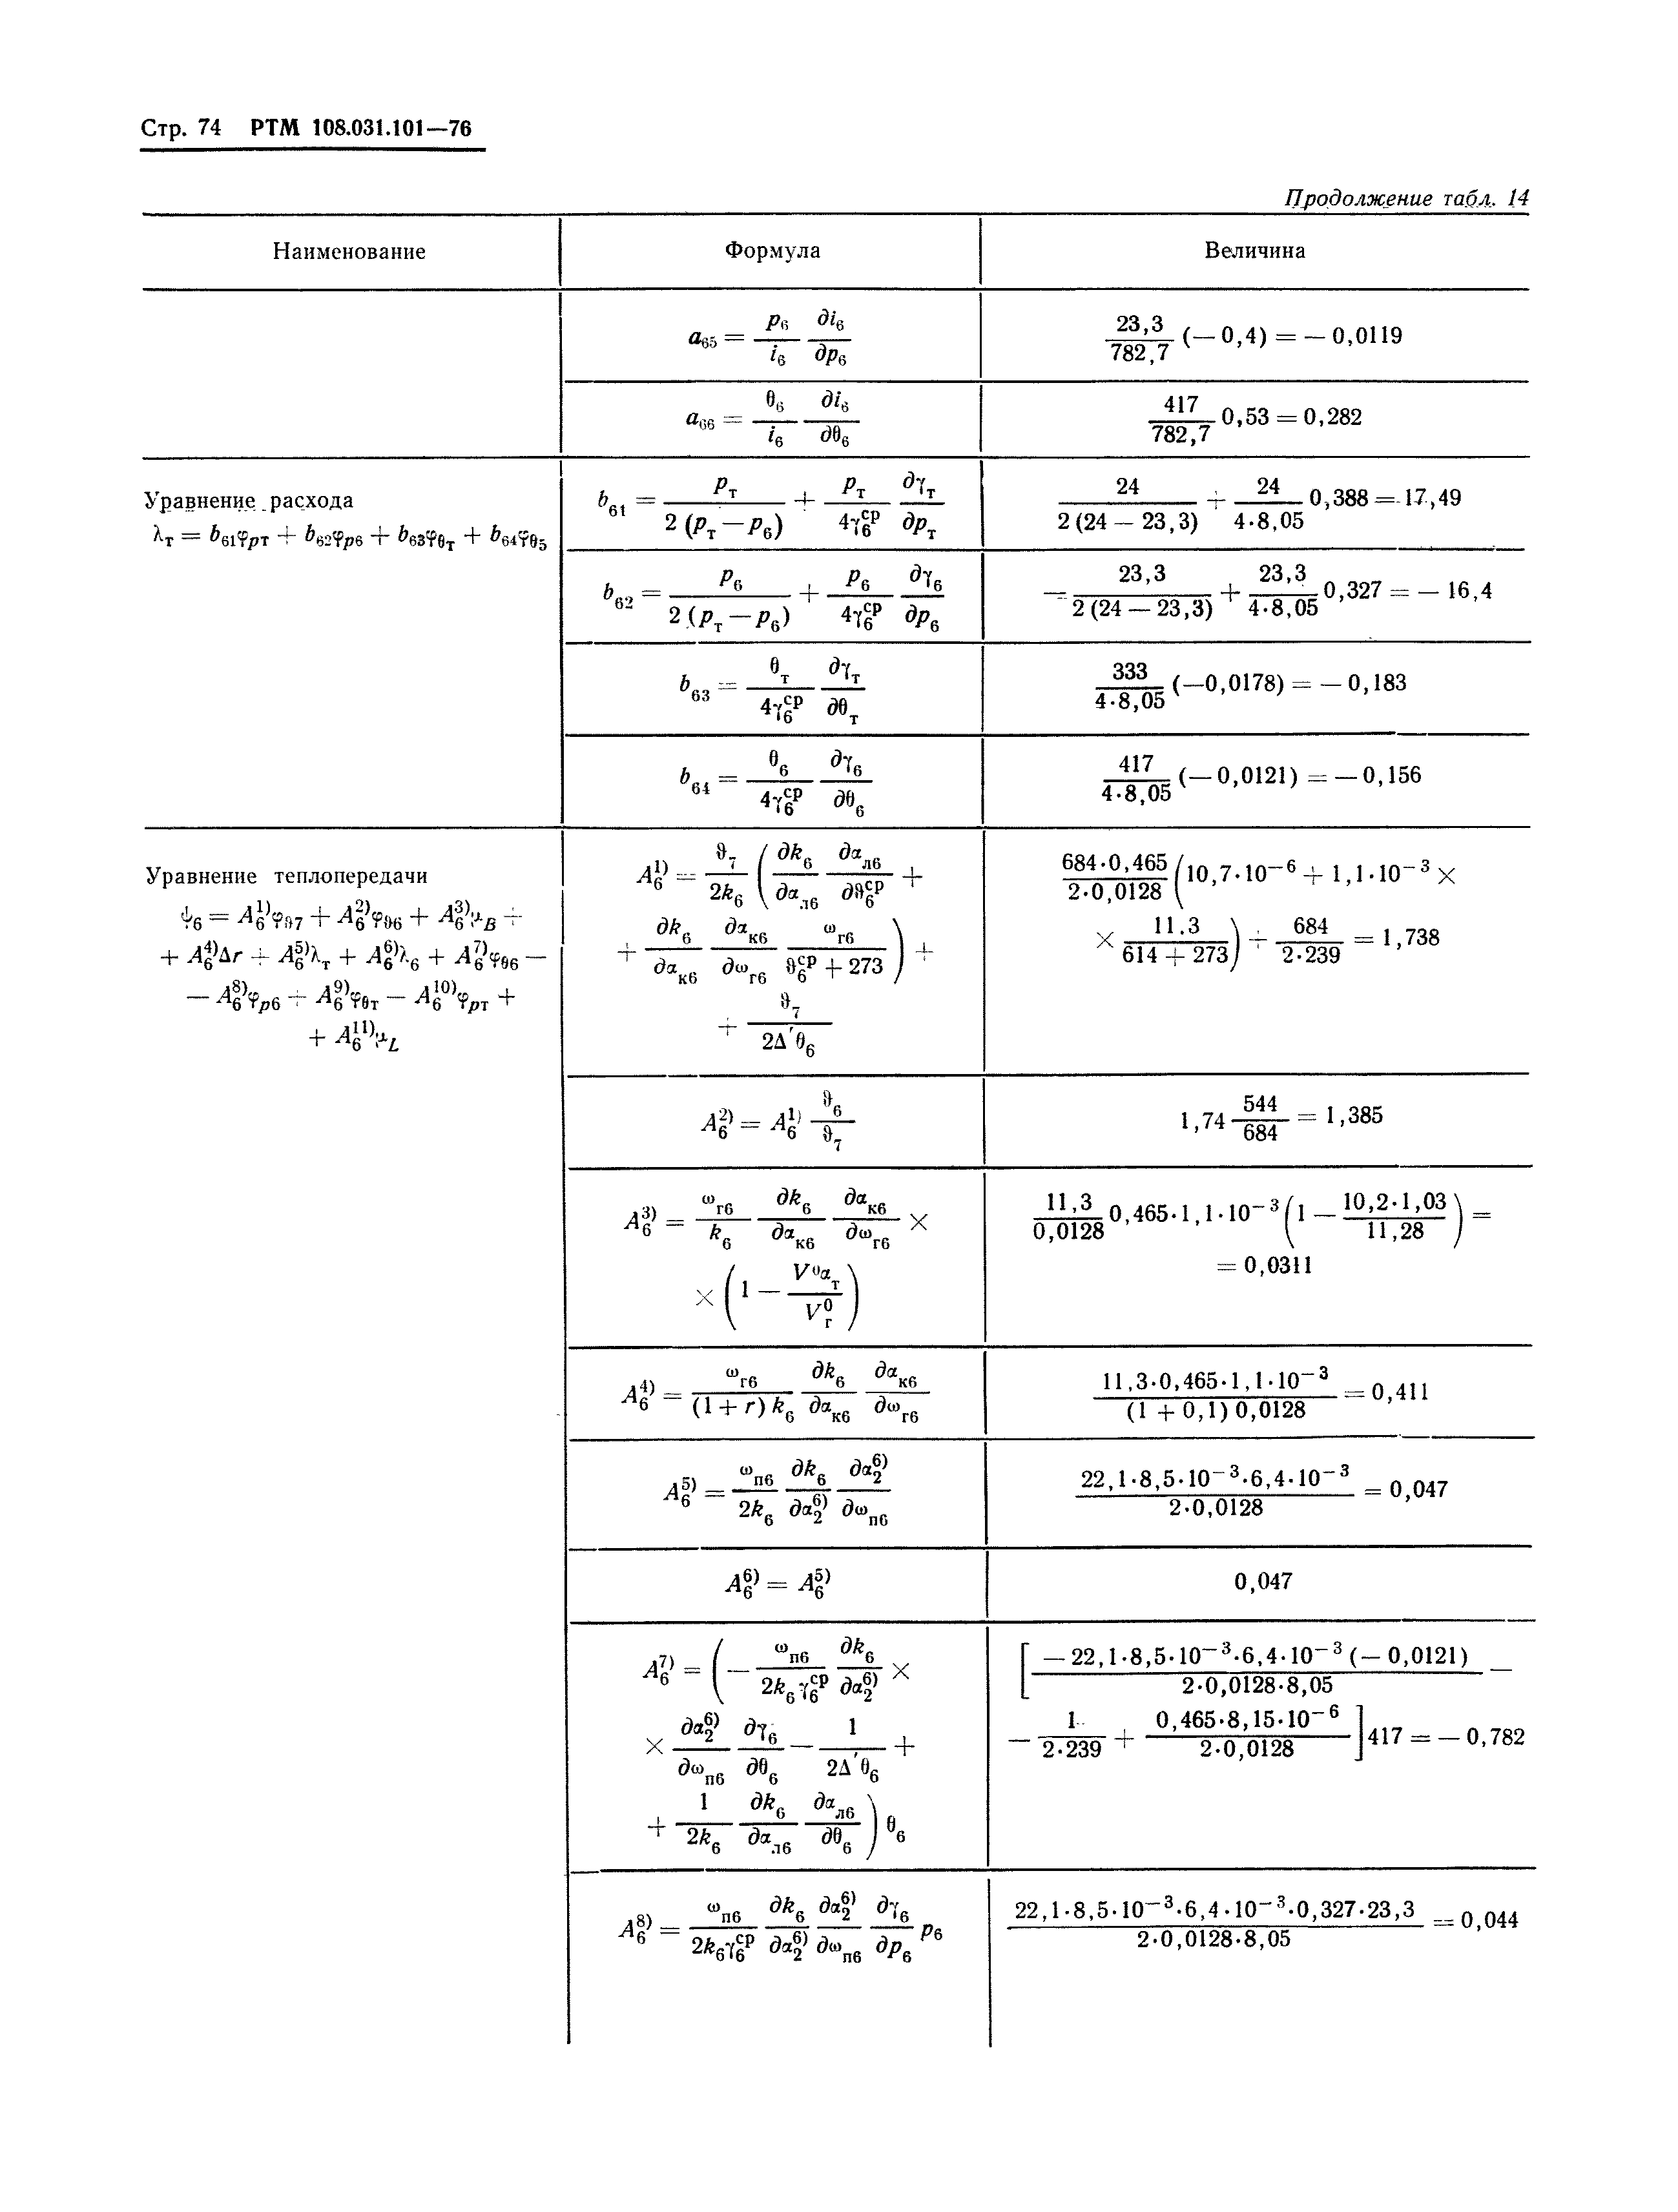 Стр. 74 РТМ 108.031.101—76
Продолжение табл. 14
Наименование | Формула | Величина
a₆₅ = (p₆ / i₆) (∂i₆ / ∂p₆) | (23,3 / 782,7) (— 0,4) = — 0,0119
a₆₆ = (θ₆ / i₆) (∂i₆ / ∂θ₆) | (417 / 782,7) 0,53 = 0,282
Уравнение расхода
λ_т = b₆₁φ_pт + b₆₂φ_p6 + b₆₃φ_θт + b₆₄φ_θ5
b₆₁ = p_т / 2 (p_т — p₆) + (p_т / 4γ₆^ср) (∂γ_т / ∂p_т) | 24 / 2 (24 — 23,3) + (24 / 4·8,05) 0,388 = 17,49
b₆₂ = p₆ / 2 (p_т — p₆) + (p₆ / 4γ₆^ср) (∂γ₆ / ∂p₆) | — 23,3 / 2 (24 — 23,3) + (23,3 / 4·8,05) 0,327 = — 16,4
b₆₃ = (θ_т / 4γ₆^ср) (∂γ_т / ∂θ_т) | (333 / 4·8,05) (—0,0178) = — 0,183
b₆₄ = (θ₆ / 4γ₆^ср) (∂γ₆ / ∂θ₆) | (417 / 4·8,05) (— 0,0121) = — 0,156
Уравнение теплопередачи
ψ₆ = A₆^1) φ_ϑ7 + A₆^2) φ_ϑ6 + A₆^3) μ_B +
+ A₆^4) Δr + A₆^5) λ_т + A₆^6) λ₆ + A₆^7) φ_θ6 —
— A₆^8) φ_p6 + A₆^9) φ_θт — A₆^10) φ_pт +
+ A₆^11) μ_L
A₆^1) = (ϑ₇ / 2k₆) ( (∂k₆ / ∂α_л6) (∂α_л6 / ∂ϑ₆^ср) + | (684·0,465 / 2·0,0128) (10,7·10⁻⁶ + 1,1·10⁻³ ×
+ (∂k₆ / ∂α_к6) (∂α_к6 / ∂ω_г6) (ω_г6 / ϑ₆^ср + 273) ) + | × 11.3 / 614 + 273) + 684 / 2·239 = 1,738
+ ϑ₇ / 2Δ′θ₆
A₆^2) = A₆^1) ϑ₆ / ϑ₇ | 1,74 (544 / 684) = 1,385
A₆^3) = (ω_г6 / k₆) (∂k₆ / ∂α_к6) (∂α_к6 / ∂ω_г6) × | (11,3 / 0,0128) 0,465·1,1·10⁻³ (1 — 10,2·1,03 / 11,28) =
× (1 — V⁰α_т / V_г⁰) | = 0,0311
A₆^4) = (ω_г6 / (1 + r) k₆) (∂k₆ / ∂α_к6) (∂α_к6 / ∂ω_г6) | 11,3·0,465·1,1·10⁻³ / (1 + 0,1) 0,0128 = 0,411
A₆^5) = (ω_п6 / 2k₆) (∂k₆ / ∂α₂^6)) (∂α₂^6) / ∂ω_п6) | 22,1·8,5·10⁻³·6,4·10⁻³ / 2·0,0128 = 0,047
A₆^6) = A₆^5) | 0,047
A₆^7) = ( — (ω_п6 / 2k₆γ₆^ср) (∂k₆ / ∂α₂^6)) × | [ — 22,1·8,5·10⁻³·6,4·10⁻³ (— 0,0121) / 2·0,0128·8,05 —
× (∂α₂^6) / ∂ω_п6) (∂γ₆ / ∂θ₆) — 1 / 2Δ′θ₆ + | — 1 / 2·239 + 0,465·8,15·10⁻⁶ / 2·0,0128 ] 417 = — 0,782
+ (1 / 2k₆) (∂k₆ / ∂α_л6) (∂α_л6 / ∂θ₆) ) θ₆
A₆^8) = (ω_п6 / 2k₆γ₆^ср) (∂k₆ / ∂α₂^6)) (∂α₂^6) / ∂ω_п6) (∂γ₆ / ∂p₆) p₆ | 22,1·8,5·10⁻³·6,4·10⁻³·0,327·23,3 / 2·0,0128·8,05 = 0,044